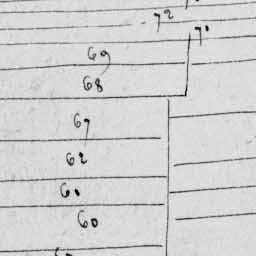 72
70
69
68
67
62
60
60